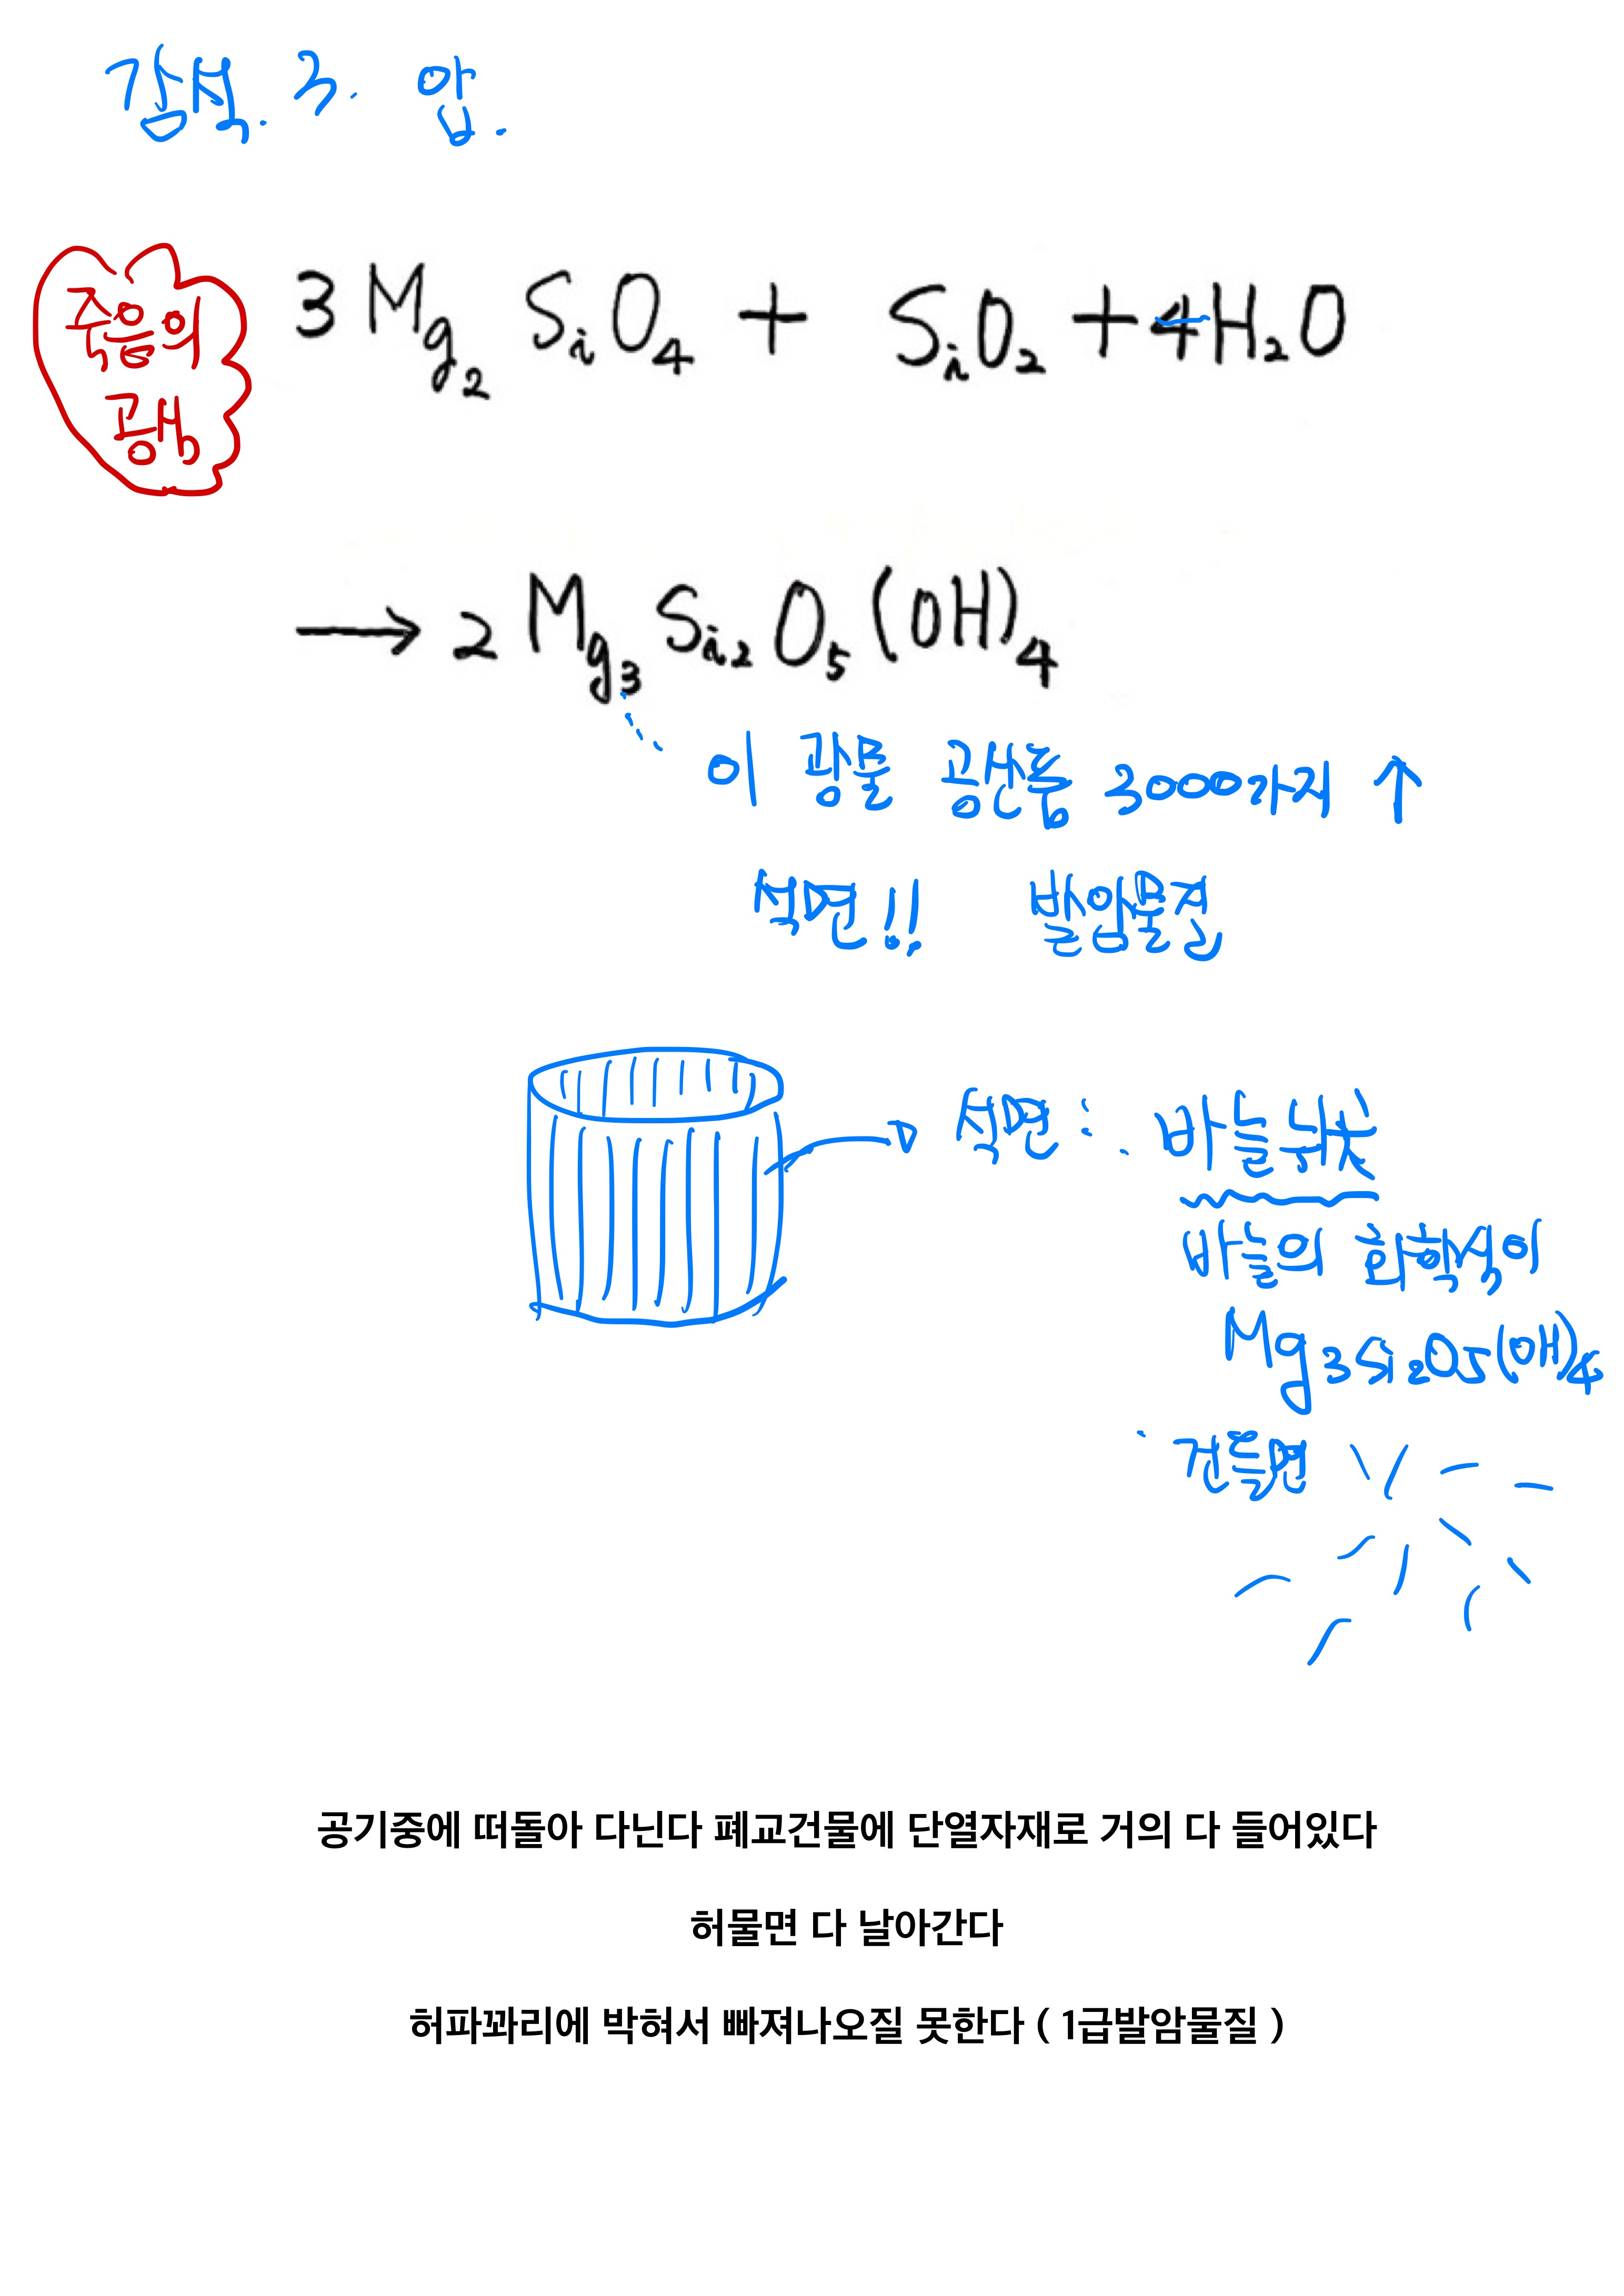 감석. 3. 암.
죽음의
공생
3Mg₂SiO₄ + SiO₂ + 4H₂O
→ 2Mg₃Si₂O₅(OH)₄
이 광물 공산품 3000가지 ↑
석면!! 발암물질
석면 : 바늘뭐
바늘의 화학식이
Mg₃Si₂O₅(OH)₄
건들면
공기중에 떠돌아 다닌다 폐교건물에 단열자재로 거의 다 들어있다
허물면 다 날아간다
허파꽈리에 박혀서 빠져나오질 못한다 ( 1급발암물질 )